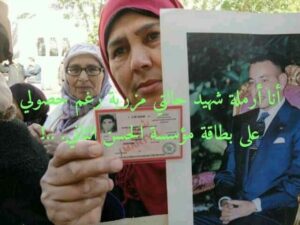 أنا أرملة شهيد حالتي مزرية رغم حصولي
على بطاقة مؤسسة الحسن الثاني. ..!